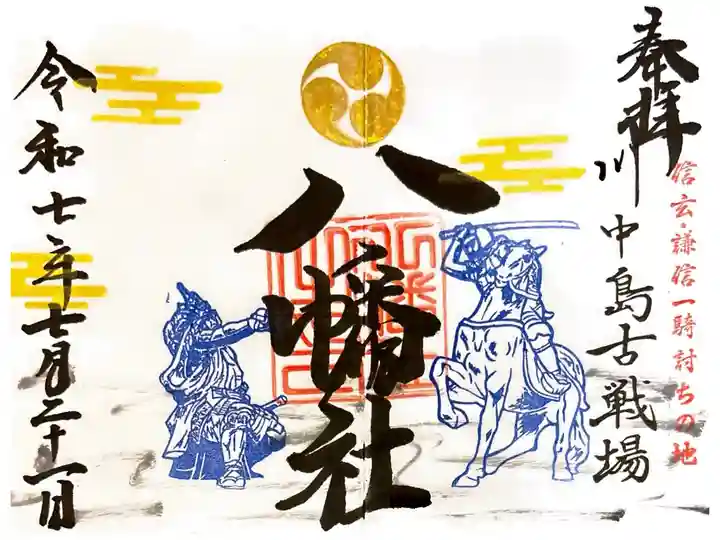 奉拝
川中島古戦場
信玄・謙信一騎討ちの地
八幡社
令和七年七月二十一日